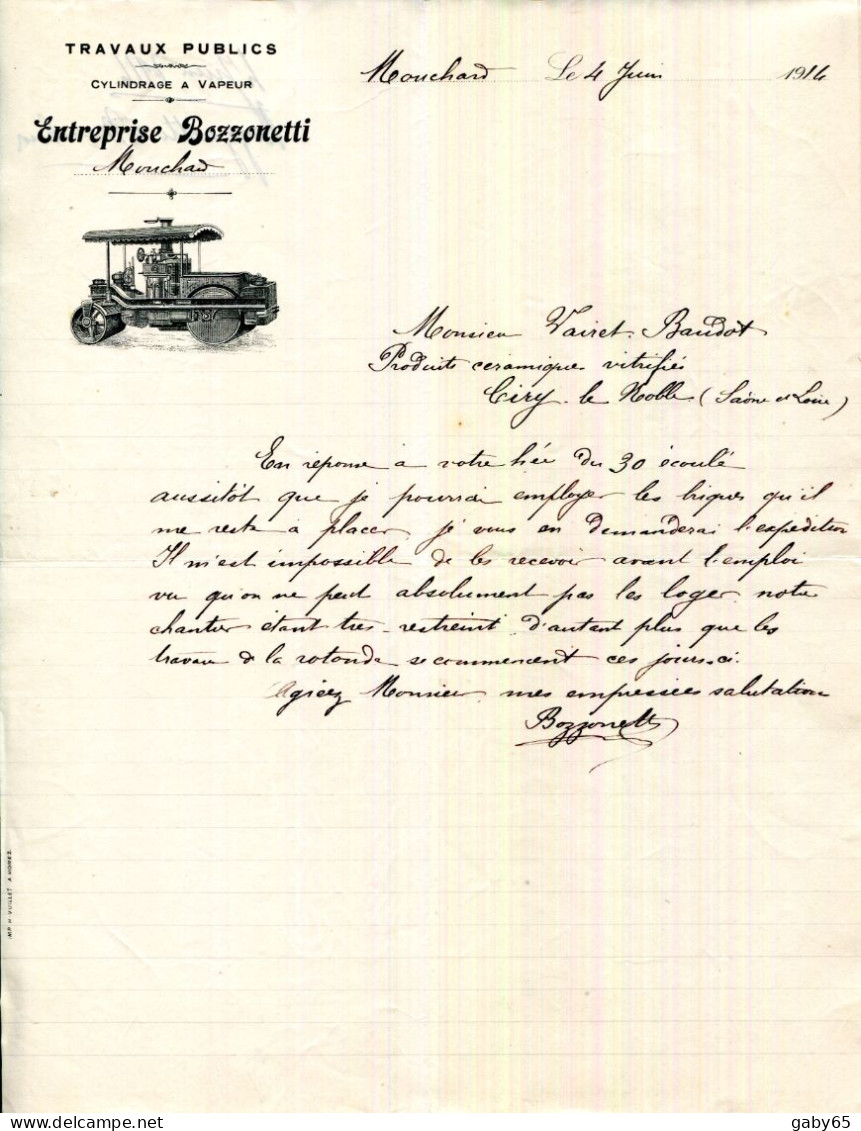 TRAVAUX PUBLICS
CYLINDRAGE A VAPEUR
Entreprise Bozzonetti
Mouchard
Mouchard Le 4 Juin 1914
Monsieur Vairet-Baudot
Produits céramique vitrifiés
Ciry-le Noble (Saône et Loire)
En réponse à votre du 30 écoulé
aussitôt que je pourrai employer les briques qu'il
me reste à placer, je vous en demanderai l'expédition
Il m'est impossible de les recevoir avant l'emploi
vu qu'on ne peut absolument pas les loger, notre
chantier étant très-restreint, d'autant plus que les
travaux de la rotonde se commencent ces jours-ci.
Agréez Monsieur mes empressées salutation
Bozzonetti
IMP. H. VUILLET A MOREZ
delcampe.net
gaby65